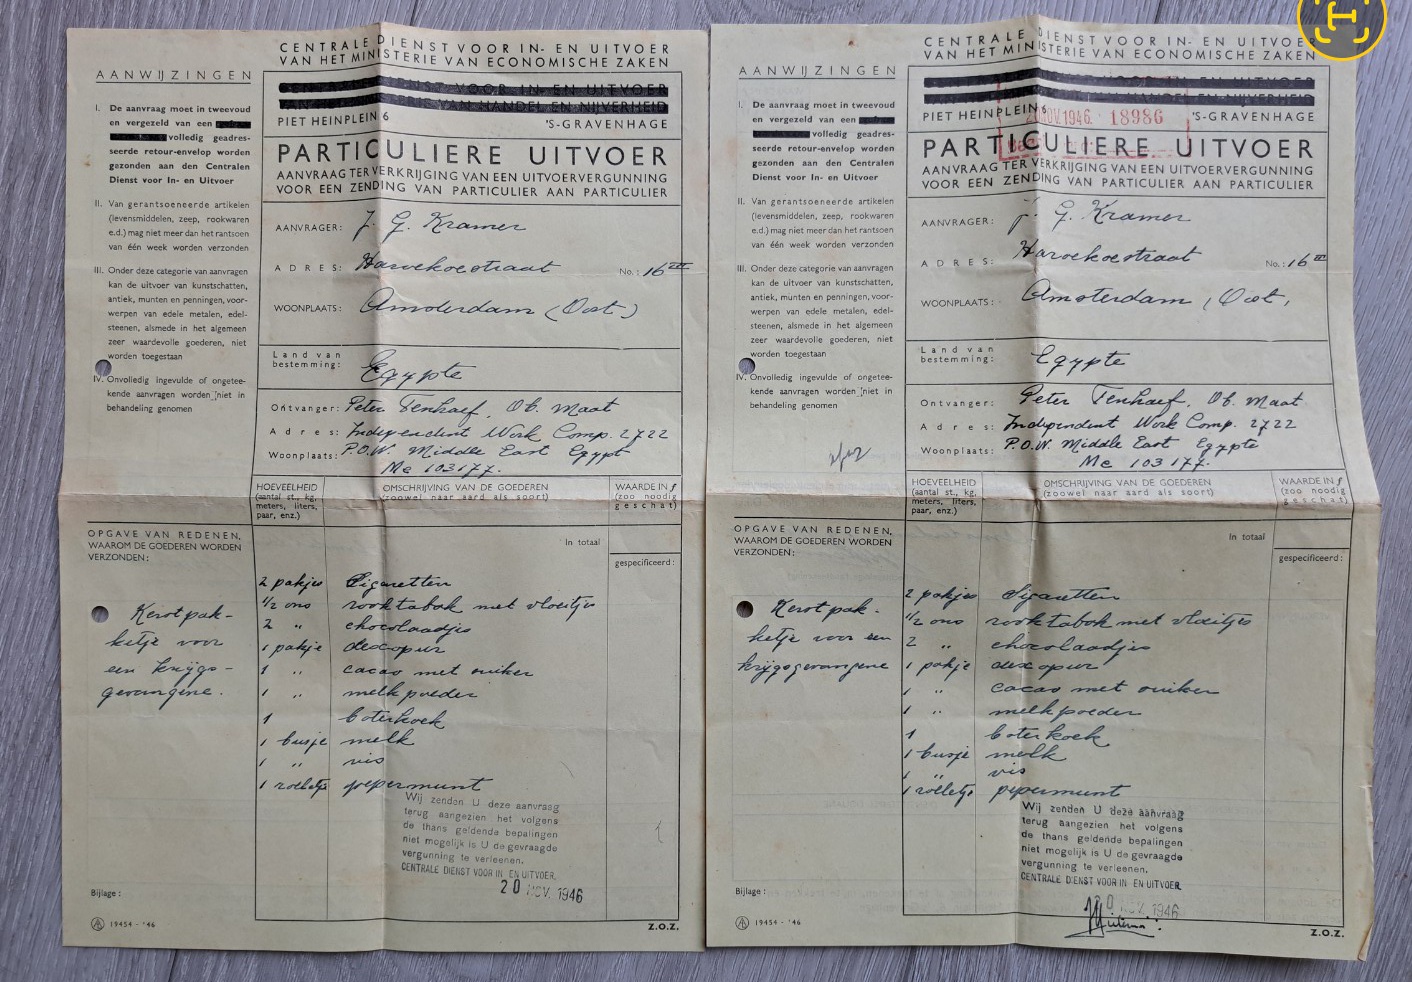 CENTRALE DIENST VOOR IN- EN UITVOER
VAN HET MINISTERIE VAN ECONOMISCHE ZAKEN
AANWIJZINGEN
I. De aanvraag moet in tweevoud
en vergezeld van een
volledig geadres-
seerde retour-envelop worden
gezonden aan den Centralen
Dienst voor In- en Uitvoer
II. Van gerantsoeneerde artikelen
(levensmiddelen, zeep, rookwaren
e.d.) mag niet meer dan het rantsoen
van één week worden verzonden
III. Onder deze categorie van aanvragen
kan de uitvoer van kunstschatten,
antiek, munten en penningen, voor-
werpen van edele metalen, edel-
steenen, alsmede in het algemeen
zeer waardevolle goederen, niet
worden toegestaan
IV. Onvolledig ingevulde of ongetee-
kende aanvragen worden niet in
behandeling genomen
VOOR IN- EN UITVOER
VAN HANDEL EN NIJVERHEID
PIET HEINPLEIN 6 'S-GRAVENHAGE
PARTICULIERE UITVOER
AANVRAAG TER VERKRIJGING VAN EEN UITVOERVERGUNNING
VOOR EEN ZENDING VAN PARTICULIER AAN PARTICULIER
AANVRAGER: J. G. Kramer
ADRES: No.: 16 III
WOONPLAATS: Amsterdam (Oost.)
Land van
bestemming: Egypte
Ontvanger: Peter Tenhaef, Ob. Maat
Adres: Independent Work Comp. 2722
Woonplaats: P.O.W. Middle East Egypt
Me 103177.
HOEVEELHEID
(aantal st., kg,
meters, liters,
paar, enz.)
OMSCHRIJVING VAN DE GOEDEREN
(zoowel naar aard als soort)
WAARDE IN f
(zoo noodig
geschat)
OPGAVE VAN REDENEN,
WAAROM DE GOEDEREN WORDEN
VERZONDEN:
In totaal
gespecificeerd:
Kerstpak-
ketje voor
een krijgs-
gevangene.
2 pakjes Sigaretten
1/2 ons rooktabak met vloeitjes
2 " chocolaadjes
1 pakje dexopur
1 " cacao met suiker
1 " melkpoeder
1 boterkoek
1 busje melk
1 " vis
1 rolletje pepermunt
Wij zenden U deze aanvraag
terug aangezien het volgens
de thans geldende bepalingen
niet mogelijk is U de gevraagde
vergunning te verleenen.
CENTRALE DIENST VOOR IN EN UITVOER.
20 NOV. 1946
Bijlage:
19454 - '46
Z.O.Z.
CENTRALE DIENST VOOR IN- EN UITVOER
VAN HET MINISTERIE VAN ECONOMISCHE ZAKEN
AANWIJZINGEN
I. De aanvraag moet in tweevoud
en vergezeld van een
volledig geadres-
seerde retour-envelop worden
gezonden aan den Centralen
Dienst voor In- en Uitvoer
II. Van gerantsoeneerde artikelen
(levensmiddelen, zeep, rookwaren
e.d.) mag niet meer dan het rantsoen
van één week worden verzonden
III. Onder deze categorie van aanvragen
kan de uitvoer van kunstschatten,
antiek, munten en penningen, voor-
werpen van edele metalen, edel-
steenen, alsmede in het algemeen
zeer waardevolle goederen, niet
worden toegestaan
IV. Onvolledig ingevulde of ongetee-
kende aanvragen worden niet in
behandeling genomen
VOOR IN- EN UITVOER
HANDEL EN NIJVERHEID
PIET HEINPLEIN 6 'S-GRAVENHAGE
NOV. 1946. 18986
PARTICULIERE UITVOER
AANVRAAG TER VERKRIJGING VAN EEN UITVOERVERGUNNING
VOOR EEN ZENDING VAN PARTICULIER AAN PARTICULIER
AANVRAGER: J. G. Kramer
ADRES: No.: 16 III
WOONPLAATS: Amsterdam (Oost,
Land van
bestemming: Egypte
Ontvanger: Peter Tenhaef, Ob. Maat
Adres: Independent Work Comp. 2722
Woonplaats: P.O.W. Middle East Egypte
Me 103177.
HOEVEELHEID
(aantal st., kg,
meters, liters,
paar, enz.)
OMSCHRIJVING VAN DE GOEDEREN
(zoowel naar aard als soort)
WAARDE IN f
(zoo noodig
geschat)
OPGAVE VAN REDENEN,
WAAROM DE GOEDEREN WORDEN
VERZONDEN:
In totaal
gespecificeerd:
Kerstpak-
ketje voor een
krijgsgevangene
2 pakjes Sigaretten
1/2 ons rooktabak met vloeitjes
2 " chocolaadjes
1 pakje dexopur
1 " cacao met suiker
1 " melkpoeder
1 boterkoek
1 busje melk
1 " vis
1 rolletje pepermunt
Wij zenden U deze aanvraag
terug aangezien het volgens
de thans geldende bepalingen
niet mogelijk is U de gevraagde
vergunning te verleenen.
CENTRALE DIENST VOOR IN EN UITVOER.
20 NOV. 1946
Bijlage:
19454 - '46
Z.O.Z.